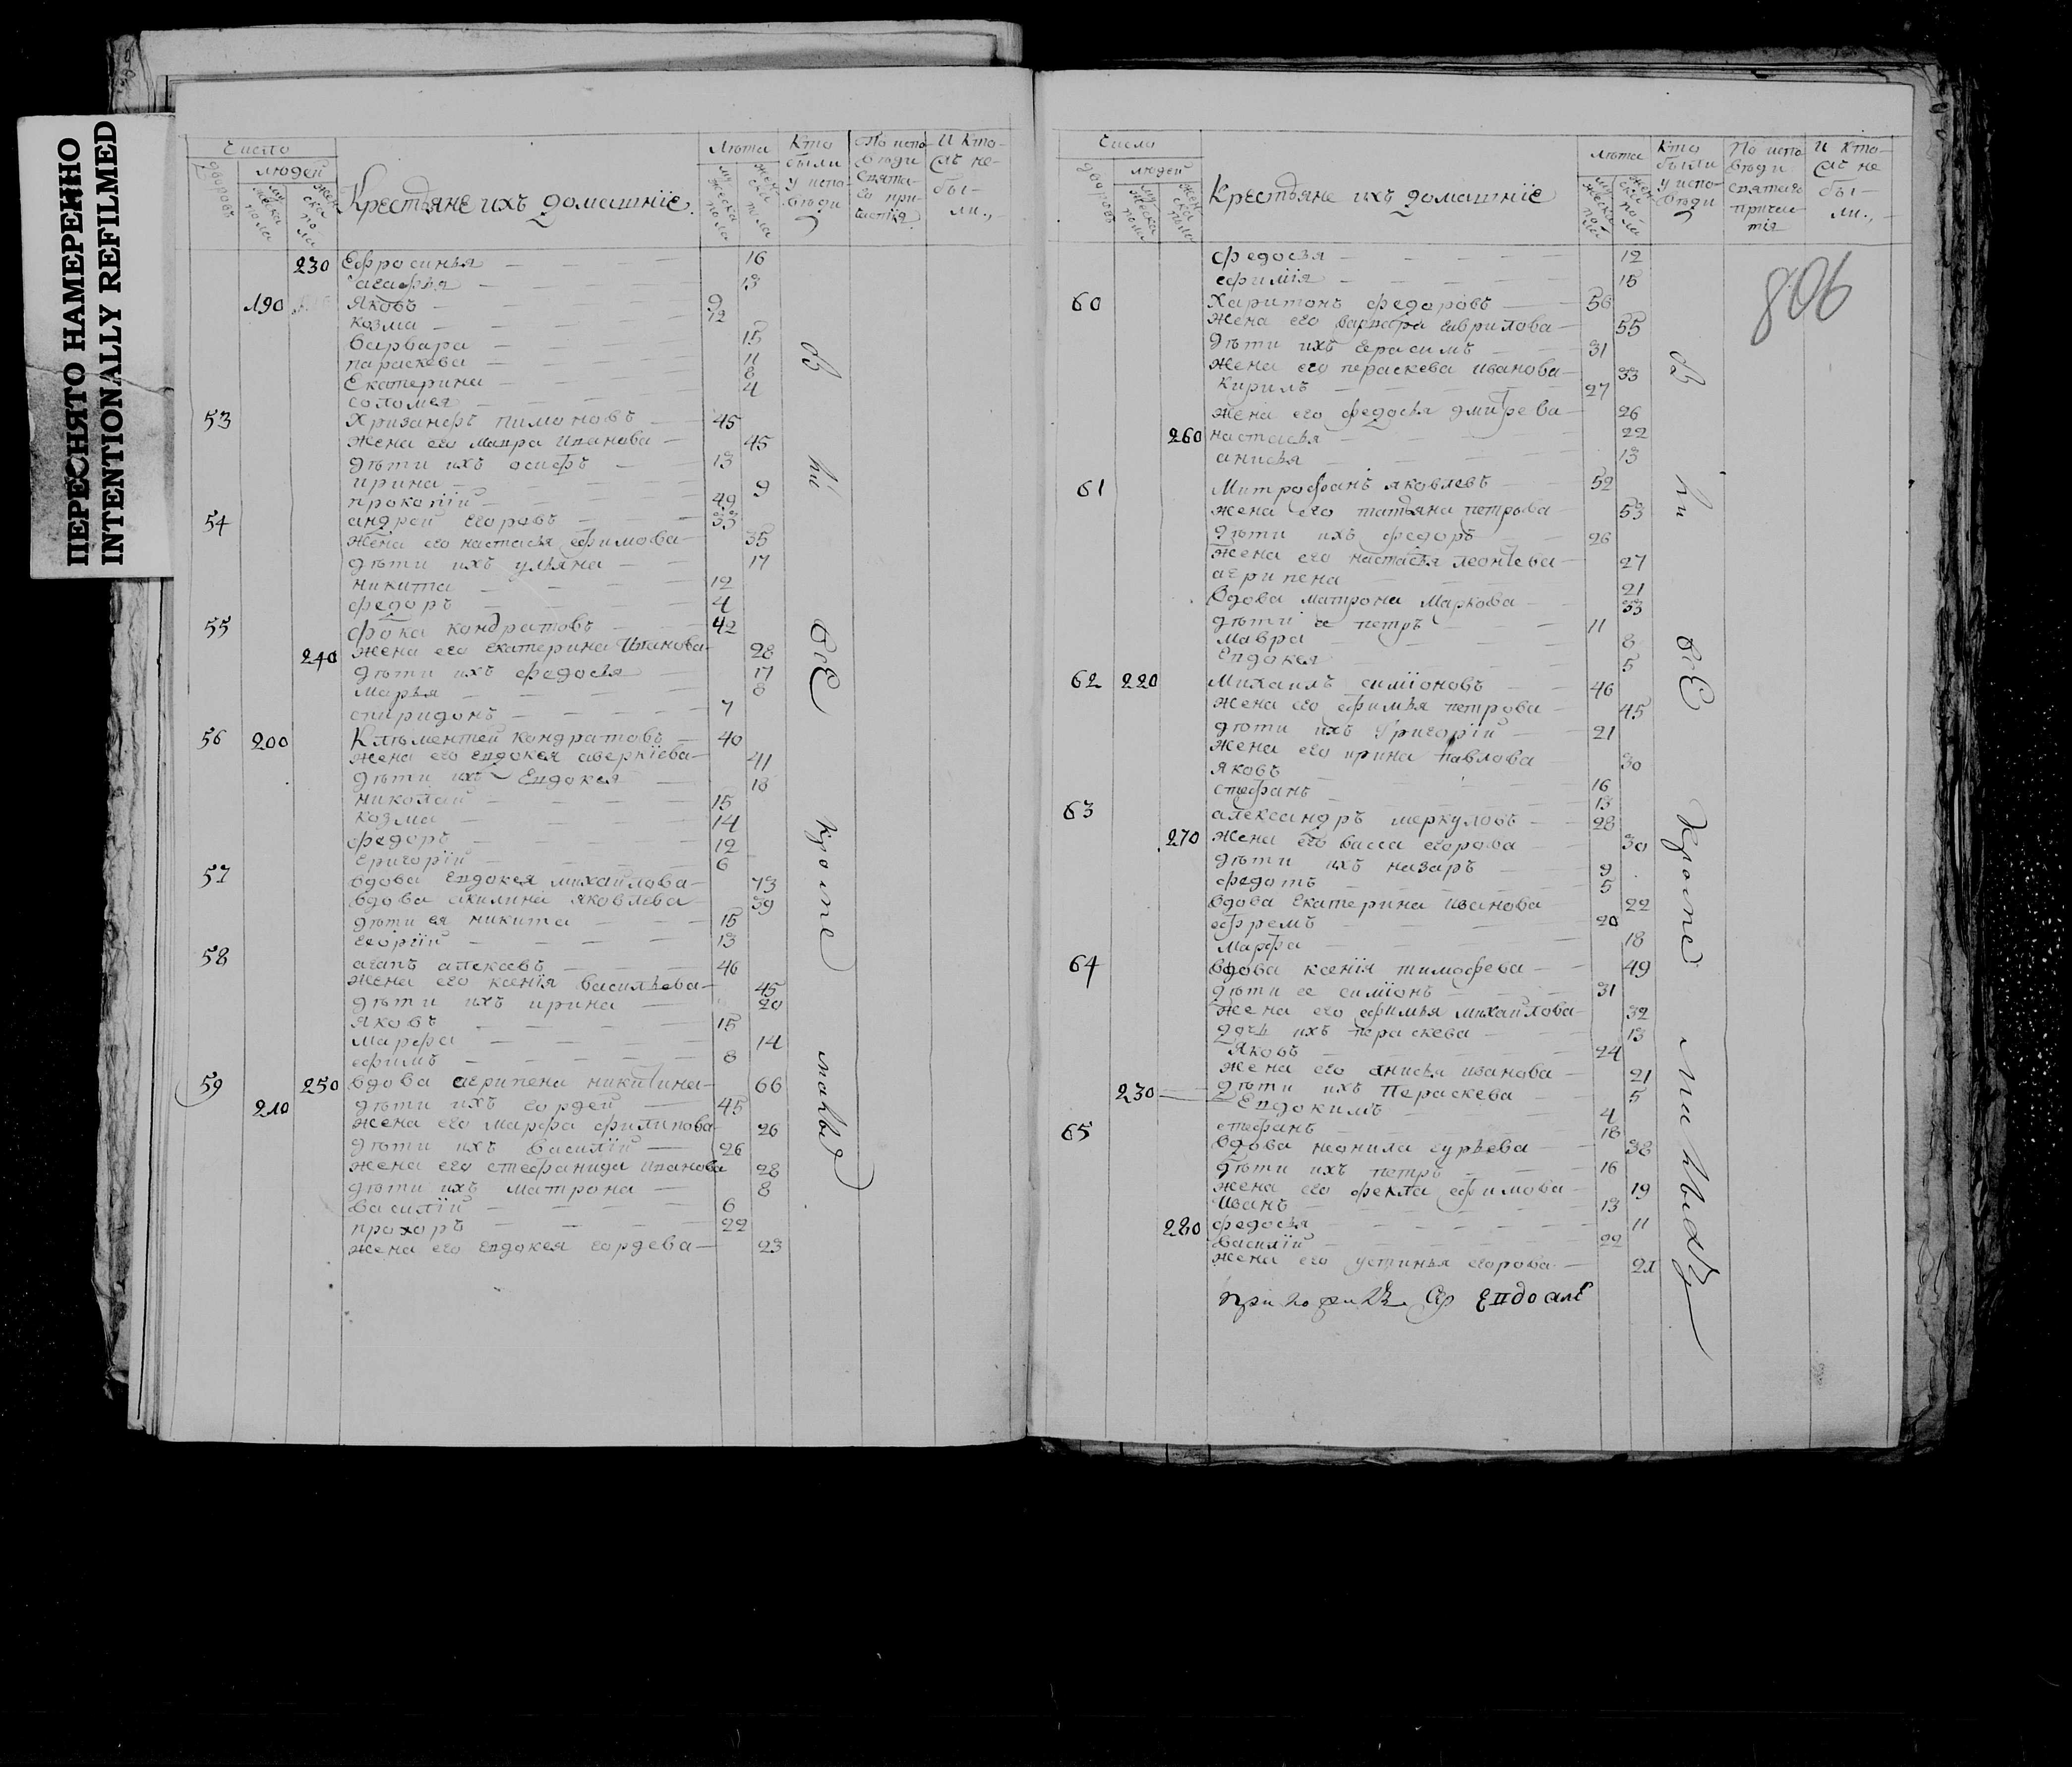 ПЕРЕСНЯТО НАМЕРЕННО
INTENTIONALLY REFILMED
Число
людей
дворовъ
мужеска пола
женска пола
Крестьяне ихъ домашніе
Лѣта
мужеска пола
женска пола
Кто были у исповѣди
По исповѣди святаго причастія
И кто сат не были
230 Ефросинья 16
агафья 13
190 Яковъ 9
козма 12
варвара 15
параскева 11
Екатерина 8
соломея 4
53 Хризанфъ пимоновъ 45
жена его мавра иванова 45
дѣти ихъ осифъ 13
ирина 9
прокопій 49
54 андрей егоровъ 33
жена его настасья ефимова 35
дѣти ихъ ульяна 17
никита 12
федоръ 4
55 фока кондратовъ 42
240 жена его екатерина иванова 28
дѣти ихъ федосья 17
марья 8
спиридонъ 7
56 200 Клѣментей кондратовъ 40
жена его евдокея аверкіева 41
дѣти ихъ Евдокея 18
николай 15
козма 14
федоръ 12
григорій 6
57 вдова евдокея михаилова 73
вдова акилина яковлева 39
дѣти ея никита 15
георгій 13
58 агапъ алексевъ 46
жена его ксенія васильева 45
дѣти ихъ ирина 20
яковъ 15
марфа 14
ефимъ 8
59 250 вдова агрипена никитина 66
210 дѣти ихъ гордей 45
жена его марфа филипова 26
дѣти ихъ василій 26
жена его стефанида иванова 28
дѣти ихъ матрона 8
василій 6
прохоръ 22
жена его евдокея гордева 23
Число
людей
дворовъ
мужеска пола
женска пола
Крестьяне ихъ домашніе
Лѣта
мужеска пола
женска пола
Кто были у исповѣди
По исповѣди святаго причастія
И кто сат не были
806
федосья 12
ефимія 15
60 Харитонъ федоровъ 56
жена его варвара гаврилова 55
дѣти ихъ герасимъ 31
жена его пераскева иванова 33
кирилъ 27
жена его федосья дмитрева 26
260 настасья 22
анисья 13
61 Митрофанъ яковлевъ 52
жена его татьяна петрова 53
дѣти ихъ федоръ 26
жена его настасья леонтева 27
агрипена 21
вдова матрона маркова 33
дѣти ее петръ 11
мавра 8
Евдокея 5
62 220 Михаилъ симіоновъ 46
жена его ефимья петрова 45
дѣти ихъ григорій 21
жена его ирина павлова 30
яковъ 16
стефанъ 13
63 александръ меркуловъ 28
270 жена его васса егорова 30
дѣти ихъ назаръ 9
федотъ 5
вдова екатерина иванова 22
ефремъ 20
марфа 18
64 вдова ксенія тимофева 49
дѣти ее симіонъ 31
жена его ефимья михаилова 32
дочь ихъ пераскева 13
яковъ 24
жена его анисья иванова 21
230 дѣти ихъ Пераскева 5
Евдокимъ 4
стефанъ 18
65 вдова неонила гурьева 38
дѣти ихъ петръ 16
жена его фекла ефимова 19
иванъ 13
280 федосья 11
василій 22
жена его устинья егорова 21